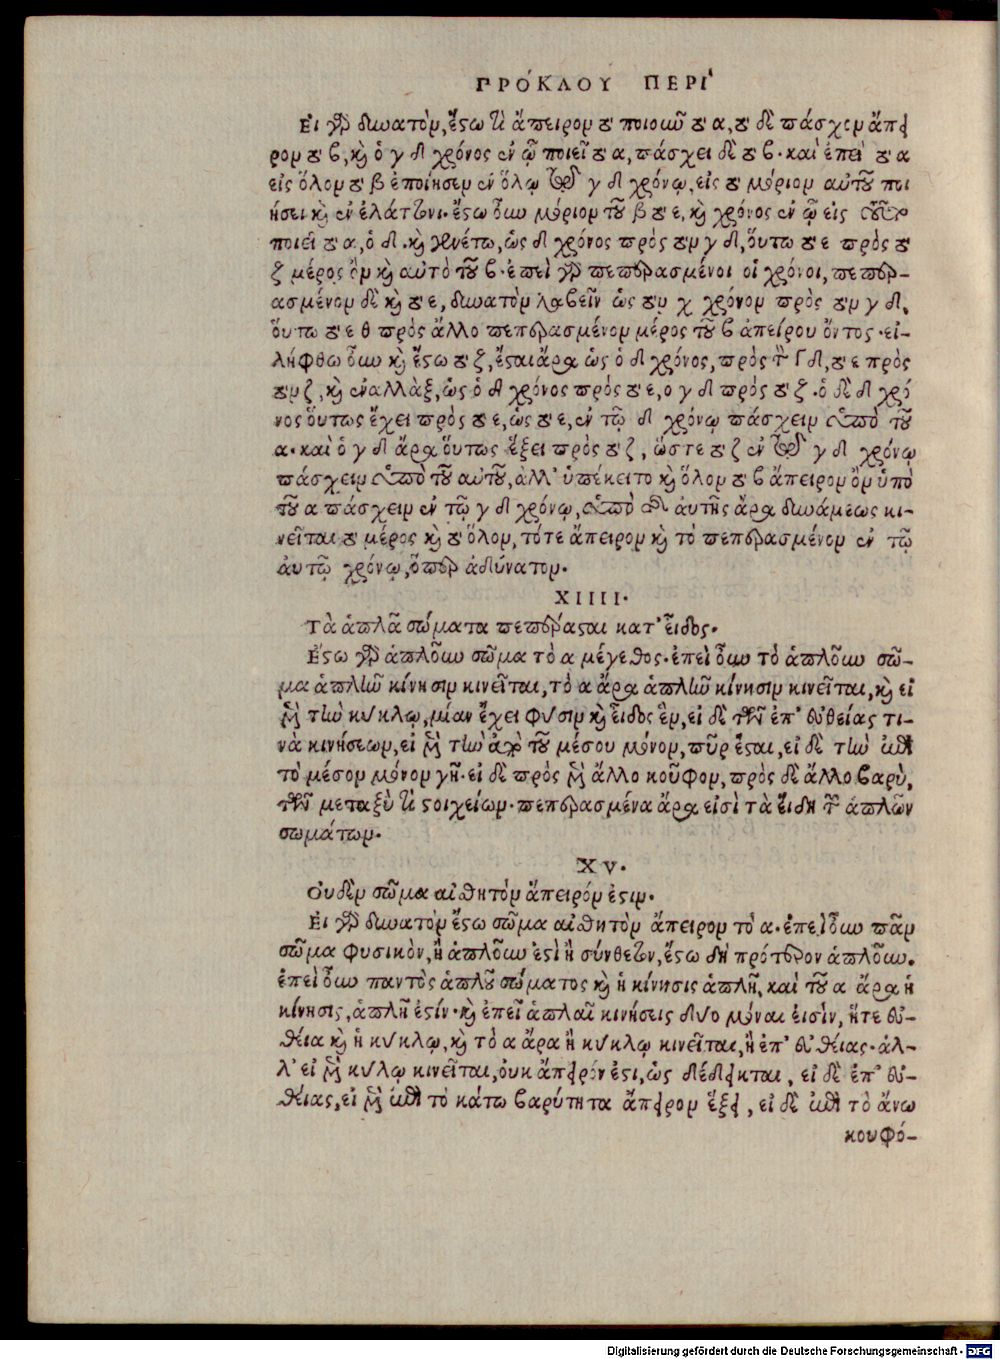 ΠΡΌΚΛΟΥ ΠΕΡῚ
Εἰ γὰρ δυνατὸν, ἔστω τι ἄπειρον τὸ ποιοῦν τὸ α, τὸ δὲ πάσχον ἄπει
ρον τὸ β, καὶ ὁ γ δ χρόνος ἐν ᾧ ποιεῖ τὸ α, πάσχει δὲ τὸ β. καὶ ἐπεὶ τὸ α
εἰς ὅλον τὸ β ἐποίησεν ἐν ὅλῳ τῷ γ δ χρόνῳ, εἰς τὸ μόριον αὐτοῦ ποι
ήσει καὶ ἐν ἐλάττονι. ἔστω οὖν μόριον τοῦ β τὸ ε, καὶ χρόνος ἐν ᾧ εἰς τοῦτο
ποιεῖ τὸ α, ὁ δ. καὶ γενέτω, ὡς δ χρόνος πρὸς τὸν γ δ, οὕτω τὸ ε πρὸς τὸ
ζ μέρος ὂν καὶ αὐτὸ τοῦ β. ἐπεὶ γὰρ πεπερασμένοι οἱ χρόνοι, πεπερ-
ασμένον δὲ καὶ τὸ ε, δυνατὸν λαβεῖν ὡς τὸν χ χρόνον πρὸς τὸν γ δ,
οὕτω τὸ ε θ πρὸς ἄλλο πεπερασμένον μέρος τοῦ β ἀπείρου ὄντος. εἰ-
λήφθω οὖν καὶ ἔστω τὸ ζ, ἔσται ἄρα ὡς ὁ δ χρόνος, πρὸς τὸν Γ δ, τὸ ε πρὸς
τὸν ζ, καὶ ἐναλλὰξ, ὡς ὁ δ χρόνος πρὸς τὸ ε, ο γ δ πρὸς τὸ ζ. ὁ δὲ δ χρό
νος οὕτως ἔχει πρὸς τὸ ε, ὡς τὸ ε, ἐν τῷ δ χρόνῳ πάσχειν ὑπὸ τοῦ
α. καὶ ὁ γ δ ἄρα οὕτως ἕξει πρὸς τὸ ζ, ὥστε τὸ ζ ἐν τῷ γ δ χρόνῳ
πάσχειν ὑπὸ τοῦ αὐτοῦ, ἀλλ' ὑπέκειτο καὶ ὅλον τὸ β ἄπειρον ὂν ὑπὸ
τοῦ α πάσχειν ἐν τῷ γ δ χρόνῳ, ὑπὸ τῆς αὐτῆς ἄρα δυνάμεως κι-
νεῖται τὸ μέρος καὶ τὸ ὅλον, τότε ἄπειρον καὶ τὸ πεπερασμένον ἐν τῷ
αὐτῷ χρόνῳ, ὅπερ ἀδύνατον.
XIIII.
Τὰ ἁπλᾶ σώματα πεπέρασται κατ' εἶδος.
Εστω γὰρ ἁπλοῦν σῶμα τὸ α μέγεθος. ἐπεὶ οὖν τὸ ἁπλοῦν σῶ-
μα ἁπλῆν κίνησιν κινεῖται, τὸ α ἄρα ἁπλῆν κίνησιν κινεῖται, καὶ εἰ
μὲν τὴν κύκλῳ, μίαν ἔχει φύσιν καὶ εἶδος ἓν, εἰ δὲ τῶν ἐπ' εὐθείας τι-
νὰ κινήσεων, εἰ μὲν τὴν ἀπὸ τοῦ μέσου μόνον, πῦρ ἔσται, εἰ δὲ τὴν ἐπὶ
τὸ μέσον μόνον γῆ. εἰ δὲ πρὸς μὲν ἄλλο κοῦφον, πρὸς δὲ ἄλλο βαρὺ,
τῶν μεταξὺ τι στοιχείων. πεπερασμένα ἄρα εἰσὶ τὰ εἴδη τῶν ἁπλῶν
σωμάτων.
XV.
Ουδὲν σῶμα αἰσθητὸν ἄπειρόν ἐστιν.
Εἰ γὰρ δυνατὸν ἔστω σῶμα αἰσθητὸν ἄπειρον τὸ α. ἐπεὶ οὖν πᾶν
σῶμα φυσικὸν, ἢ ἁπλοῦν ἐστὶ ἢ σύνθετον, ἔστω δὴ πρότερον ἁπλοῦν.
ἐπεὶ οὖν παντὸς ἁπλοῦ σώματος καὶ ἡ κίνησις ἁπλῆ, καὶ τοῦ α ἄρα ἡ
κίνησις, ἁπλῆ ἐστίν. καὶ ἐπεὶ ἁπλαῖ κινήσεις δύο μόναι εἰσὶν, ἥτε εὐ-
θεῖα καὶ ἡ κύκλῳ, καὶ τὸ α ἄρα ἢ κύκλῳ κινεῖται, ἢ ἐπ' εὐθείας. ἀλ-
λ' εἰ μὲν κύκλῳ κινεῖται, ουκ ἄπειρόν ἐστι, ὡς δέδεικται, εἰ δὲ ἐπ' εὐ-
θείας, εἰ μὲν ἐπὶ τὸ κάτω βαρύτητα ἄπειρον ἕξει, εἰ δὲ ἐπὶ τὸ ἄνω
κουφό-
Digitalisierung gefördert durch die Deutsche Forschungsgemeinschaft - DFG